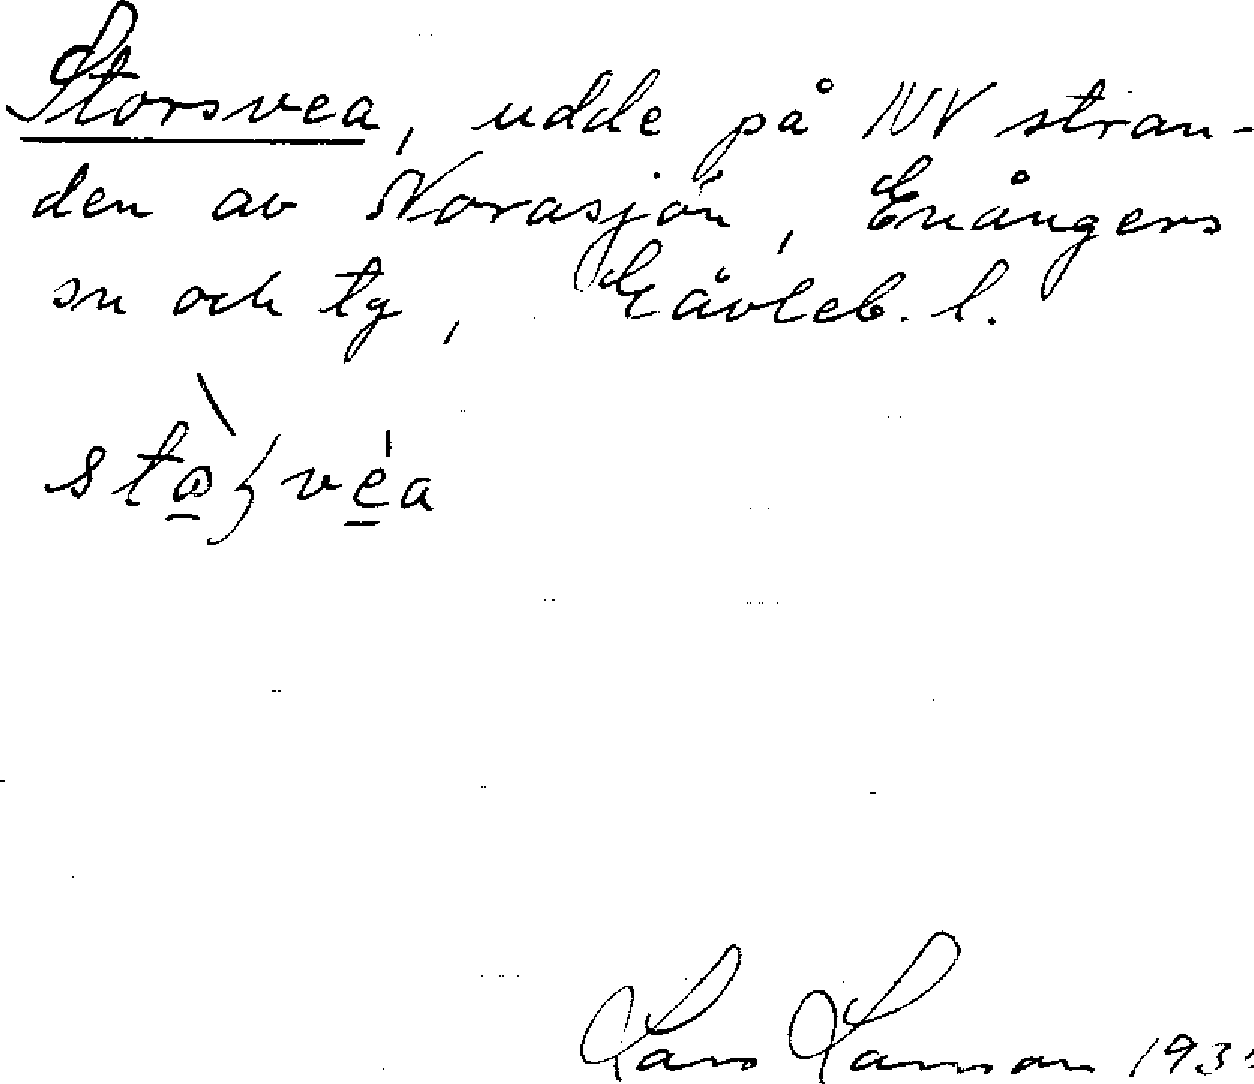 Storsvea, udde på NV stran-
den av Norasjön, Enångers
sn och tg, Gävleb. l.
Lars Larsson